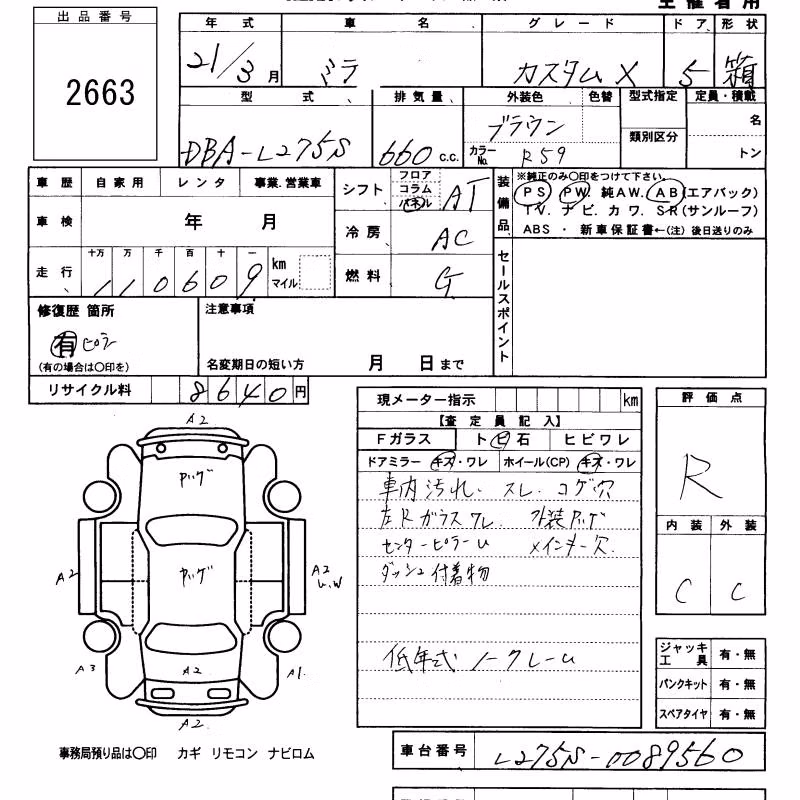 主催者用
出品番号
2663
年式 車名 グレード ドア 形状
21/3月 ミラ カスタムX 5 箱
型式 排気量 外装色 色替 型式指定 定員・積載
DBA-L275S 660 c.c. ブラウン 類別区分 名
カラーNo. R59 トン
車歴 自家用 レンタ 事業.営業車
シフト フロア コラム パネル AT
装備品 ※純正のみ〇印をつけて下さい。
PS PW. 純AW. AB(エアバック)
TV. ナビ. カワ. SR(サンルーフ)
ABS ・ 新車保証書←(注) 後日送りのみ
車検 年 月
冷房 AC
走行 十万 万 千 百 十 一
110609 km マイル
燃料 G
セールスポイント
修復歴 箇所
有 ピラー
(有の場合は〇印を)
注意事項
名変期日の短い方 月 日まで
リサイクル料 8640円
現メーター指示 km
【査定員記入】
Fガラス ト ビ 石 ヒビワレ
ドアミラー キズ・ワレ ホイール(CP) キズ・ワレ
車内汚れ. スレ. コゲ穴
左Rガラスワレ. 外装ヤッゲ
センターピラーU メインキー欠.
ダッシュ付着物
低年式 ノークレーム
評価点
R
内装 外装
C C
A2
ヤッゲ
ヤッゲ
A2
A2
U.W
A3
A2
A1.
A2
ジャッキ工具 有・無
パンクキット 有・無
スペアタイヤ 有・無
事務局預り品は〇印 カギ リモコン ナビロム
車台番号 L275S-0089560